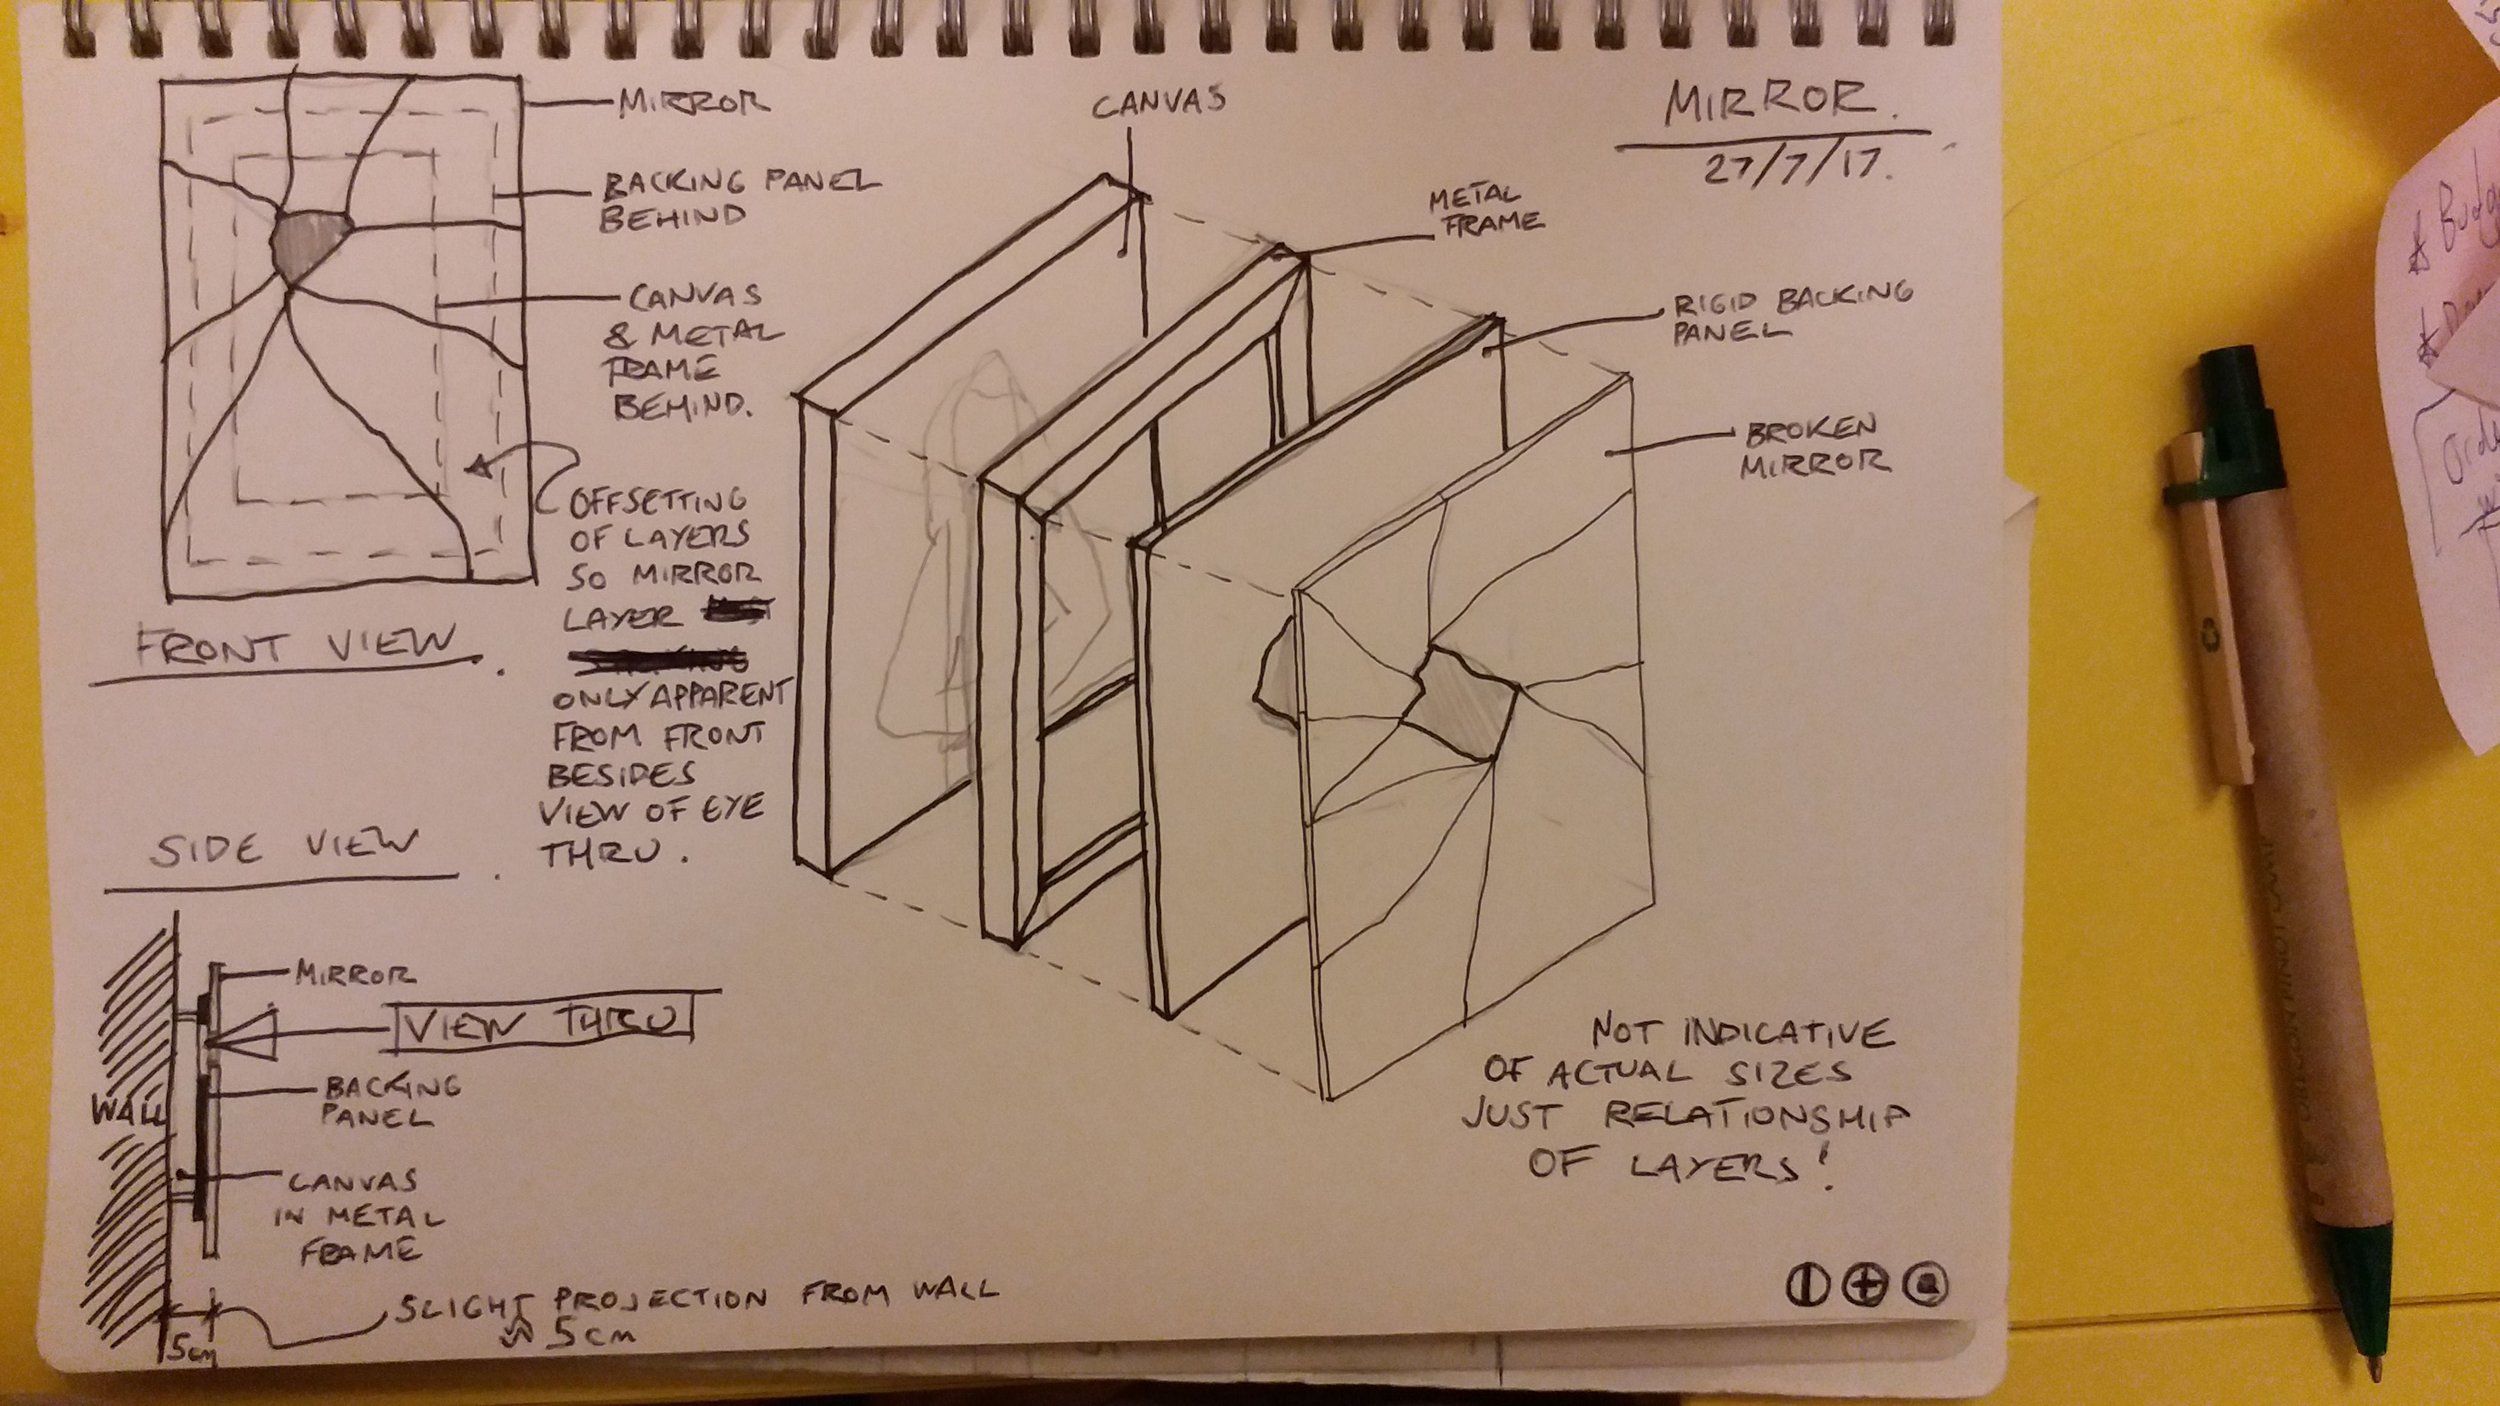 MIRROR.
27/7/17.
MIRROR
BACKING PANEL
BEHIND
CANVAS
& METAL
FRAME
BEHIND.
OFFSETTING
OF LAYERS
SO MIRROR
LAYER
ONLY APPARENT
FROM FRONT
BESIDES
VIEW OF EYE
THRU.
FRONT VIEW.
CANVAS
METAL
FRAME
RIGID BACKING
PANEL
BROKEN
MIRROR
SIDE VIEW.
MIRROR
VIEW THRU
BACKING
PANEL
WALL
CANVAS
IN METAL
FRAME
SLIGHT PROJECTION FROM WALL
≈ 5cm
5cm
NOT INDICATIVE
OF ACTUAL SIZES
JUST RELATIONSHIP
OF LAYERS!